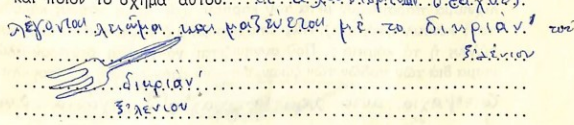 καὶ ποῖον τὸ σχῆμα αὐτοῦ
λέγονται λειῶμα καὶ μαζεύεται μὲ το δικριάν'
ξ'λένιου
δικριάν'
ξ'λένιου